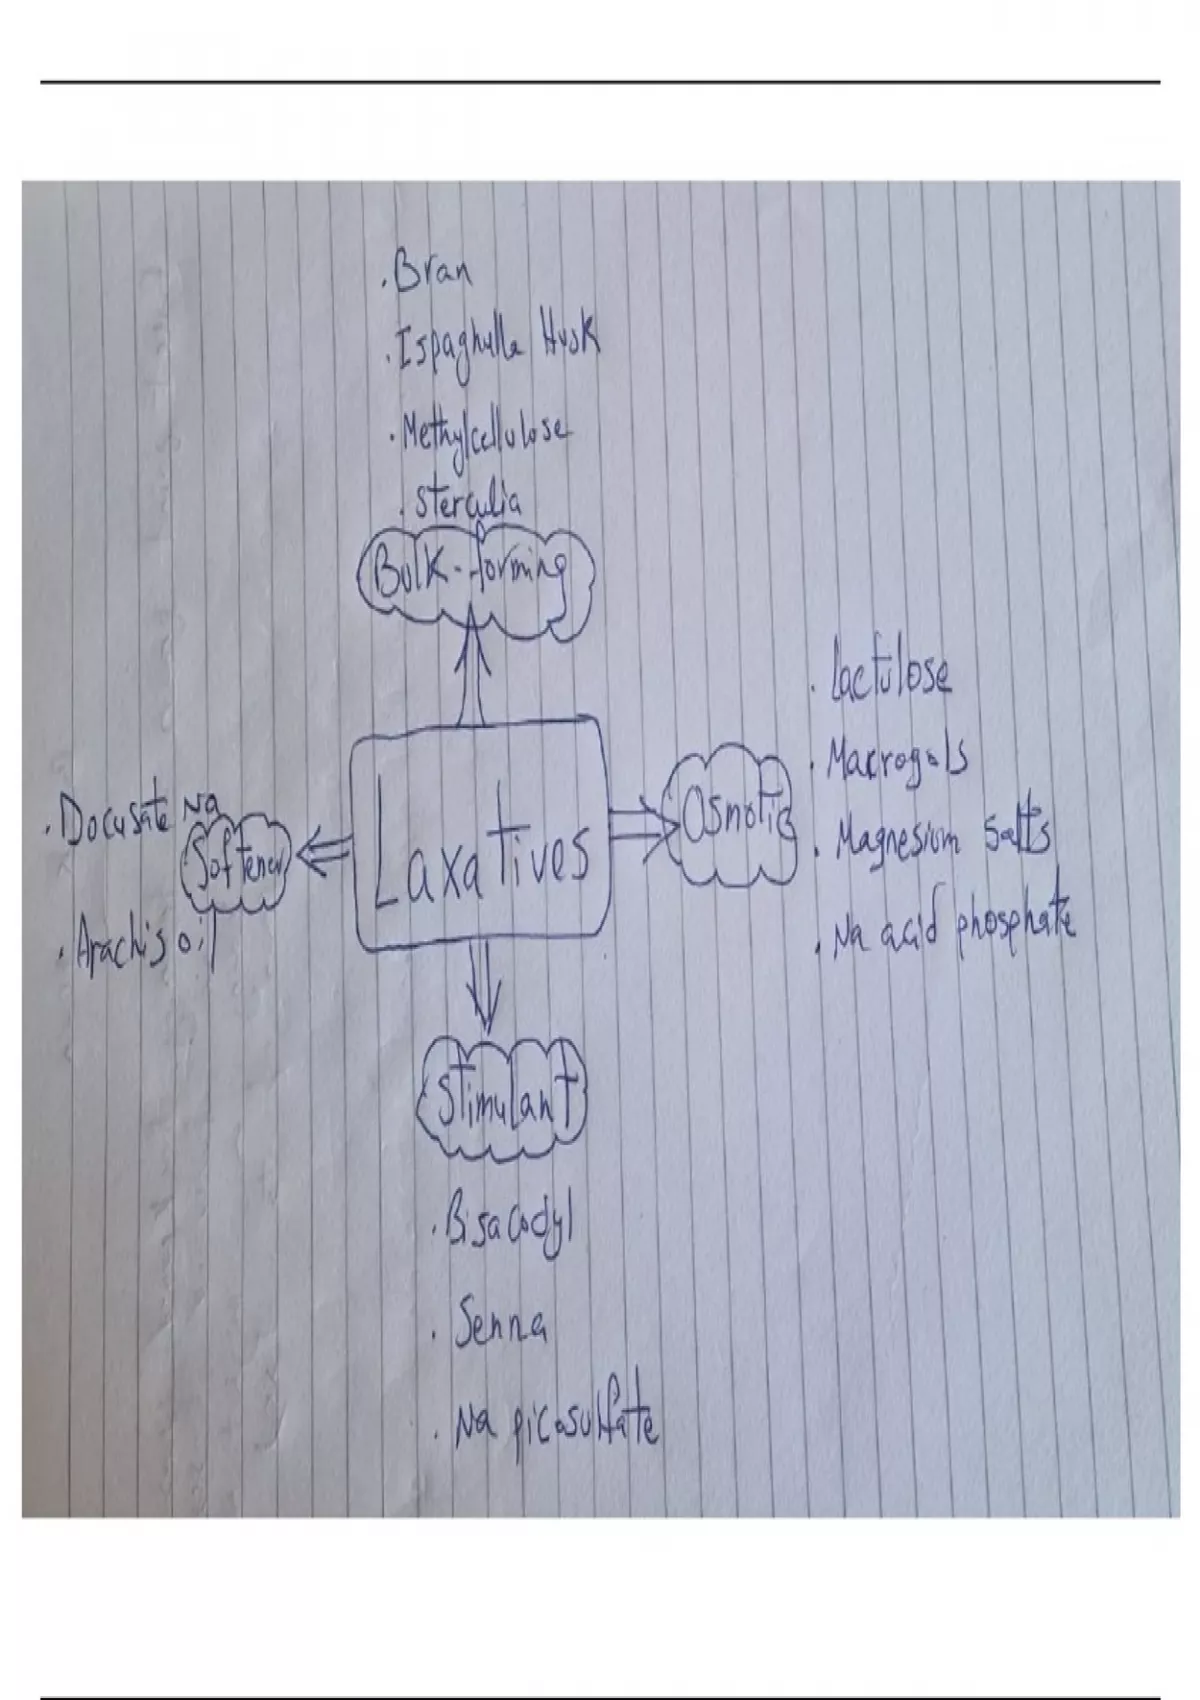 . Bran
. Ispaghulla Husk
. Methylcellulose
. Sterculia
Bulk-forming
. Lactulose
. Macrogols
. Magnesium Salts
. Na acid phosphate
Osmotic
Laxatives
. Docusate Na
Softener
. Arachis oil
Stimulant
. Bisacodyl
. Senna
. Na picosulfate